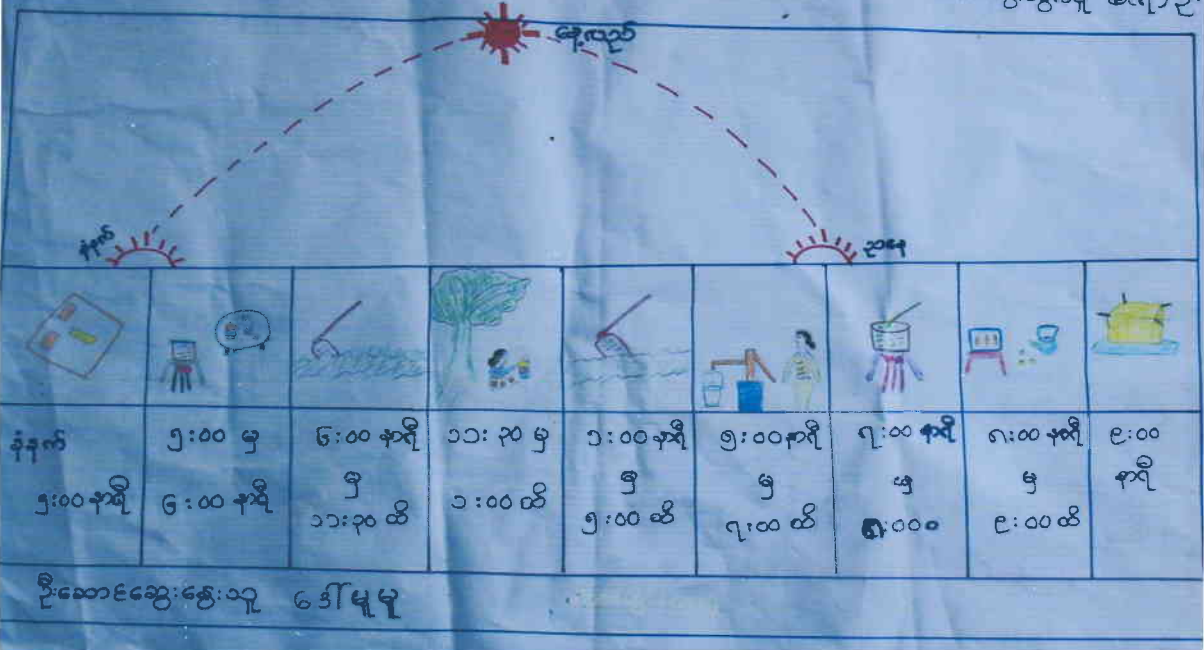 နေ့လည်
နံနက်
ညနေ
နံနက်
၅:၀၀ နာရီ
၅:၀၀ မှ
၆:၀၀ နာရီ
၆:၀၀ နာရီ
မှ
၁၁:၃၀ ထိ
၁၁:၃၀ မှ
၁:၀၀ ထိ
၁:၀၀ နာရီ
မှ
၅:၀၀ ထိ
၅:၀၀ နာရီ
မှ
၇:၀၀ ထိ
၇:၀၀ နာရီ
မှ
၈:၀၀
၈:၀၀ နာရီ
မှ
၉:၀၀ ထိ
၉:၀၀
နာရီ
ဦးဆောင်ဆွေးနွေးသူ ဒေါ်မူမူ